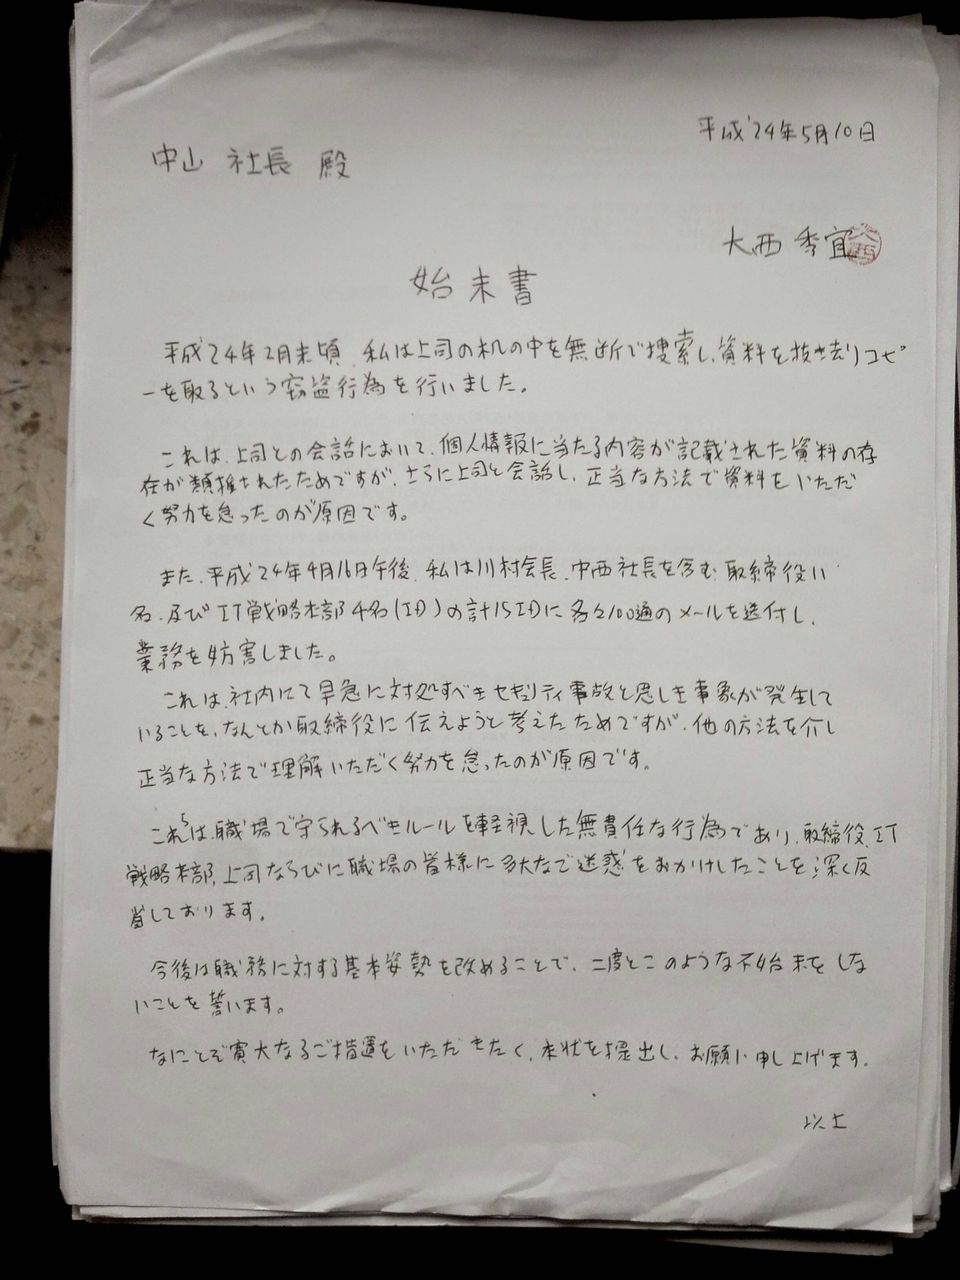 平成24年5月10日
中山 社長 殿
大西 秀宜
始末書
平成24年2月末頃、私は上司の机の中を無断で捜索し、資料を抜き去りコピ
ーを取るという窃盗行為を行いました。
これは、上司との会話において、個人情報に当たる内容が記載された資料の存
在が類推されたためですが、さらに上司と会話し、正当な方法で資料をいただ
く努力を怠ったのが原因です。
また、平成24年4月16日午後、私は川村会長、中西社長を含む取締役11
名、及びIT戦略本部4名(ID)の計15IDに各々100通のメールを送付し、
業務を妨害しました。
これは、社内にて早急に対処すべきセキュリティ事故と思しき事象が発生して
いることを、なんとか取締役に伝えようと考えたためですが、他の方法を介し
正当な方法で理解いただく努力を怠ったのが原因です。
これらは、職場で守られるべきルールを軽視した無責任な行為であり、取締役、IT
戦略本部、上司ならびに職場の皆様に多大なご迷惑をおかけしたことを深く反
省しております。
今後は職務に対する基本姿勢を改めることで、二度とこのような不始末をしな
いことを誓います。
なにとぞ寛大なるご措置をいただきたく、本状を提出し、お願い申し上げます。
以上